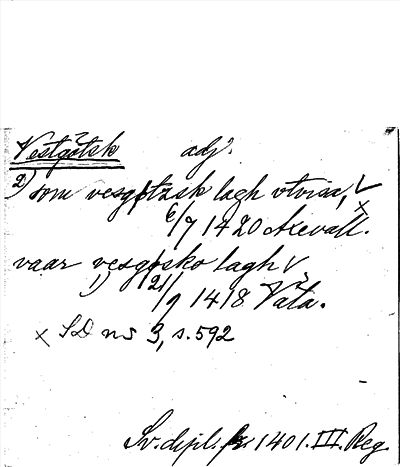 Vestgötsk adj.
2) som vesgøtzsk lagh vtvisa,
6/7 1420 Axevall.
vaar vesgøsko lagh
1) 21/9 1418 Vāta.
x SD ns 3, s. 592
Sv. dipl. fr. 1401. III. Reg.